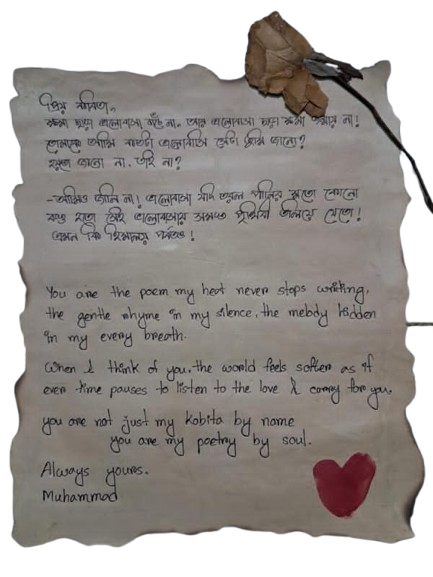 প্রিয় কবিতা,
কথা ছাড়া ভালোবাসা হয় না, আর ভালোবাসা ছাড়া কথা না!
তোমাকে আমি কতটা ভালোবাসি সেটা তুমি জানো?
হয়তো জানো না, তাই না?
-আমিও জানি না! ভালোবাসা যদি তরল পানির মতো কোনো
বস্তু হতো সেই ভালোবাসায় সমস্ত পৃথিবী তলিয়ে যেতো!
এমন কি হিমালয় পর্বতও!
You are the poem my heat never stops writing,
the gentle rhyme in my silence, the melody hidden
in my every breath.
When I think of you, the world feels soften as if
even time pauses to listen to the love I carry for you.
you are not just my kobita by name
you are my poetry by soul.
Always yours.
Muhammad